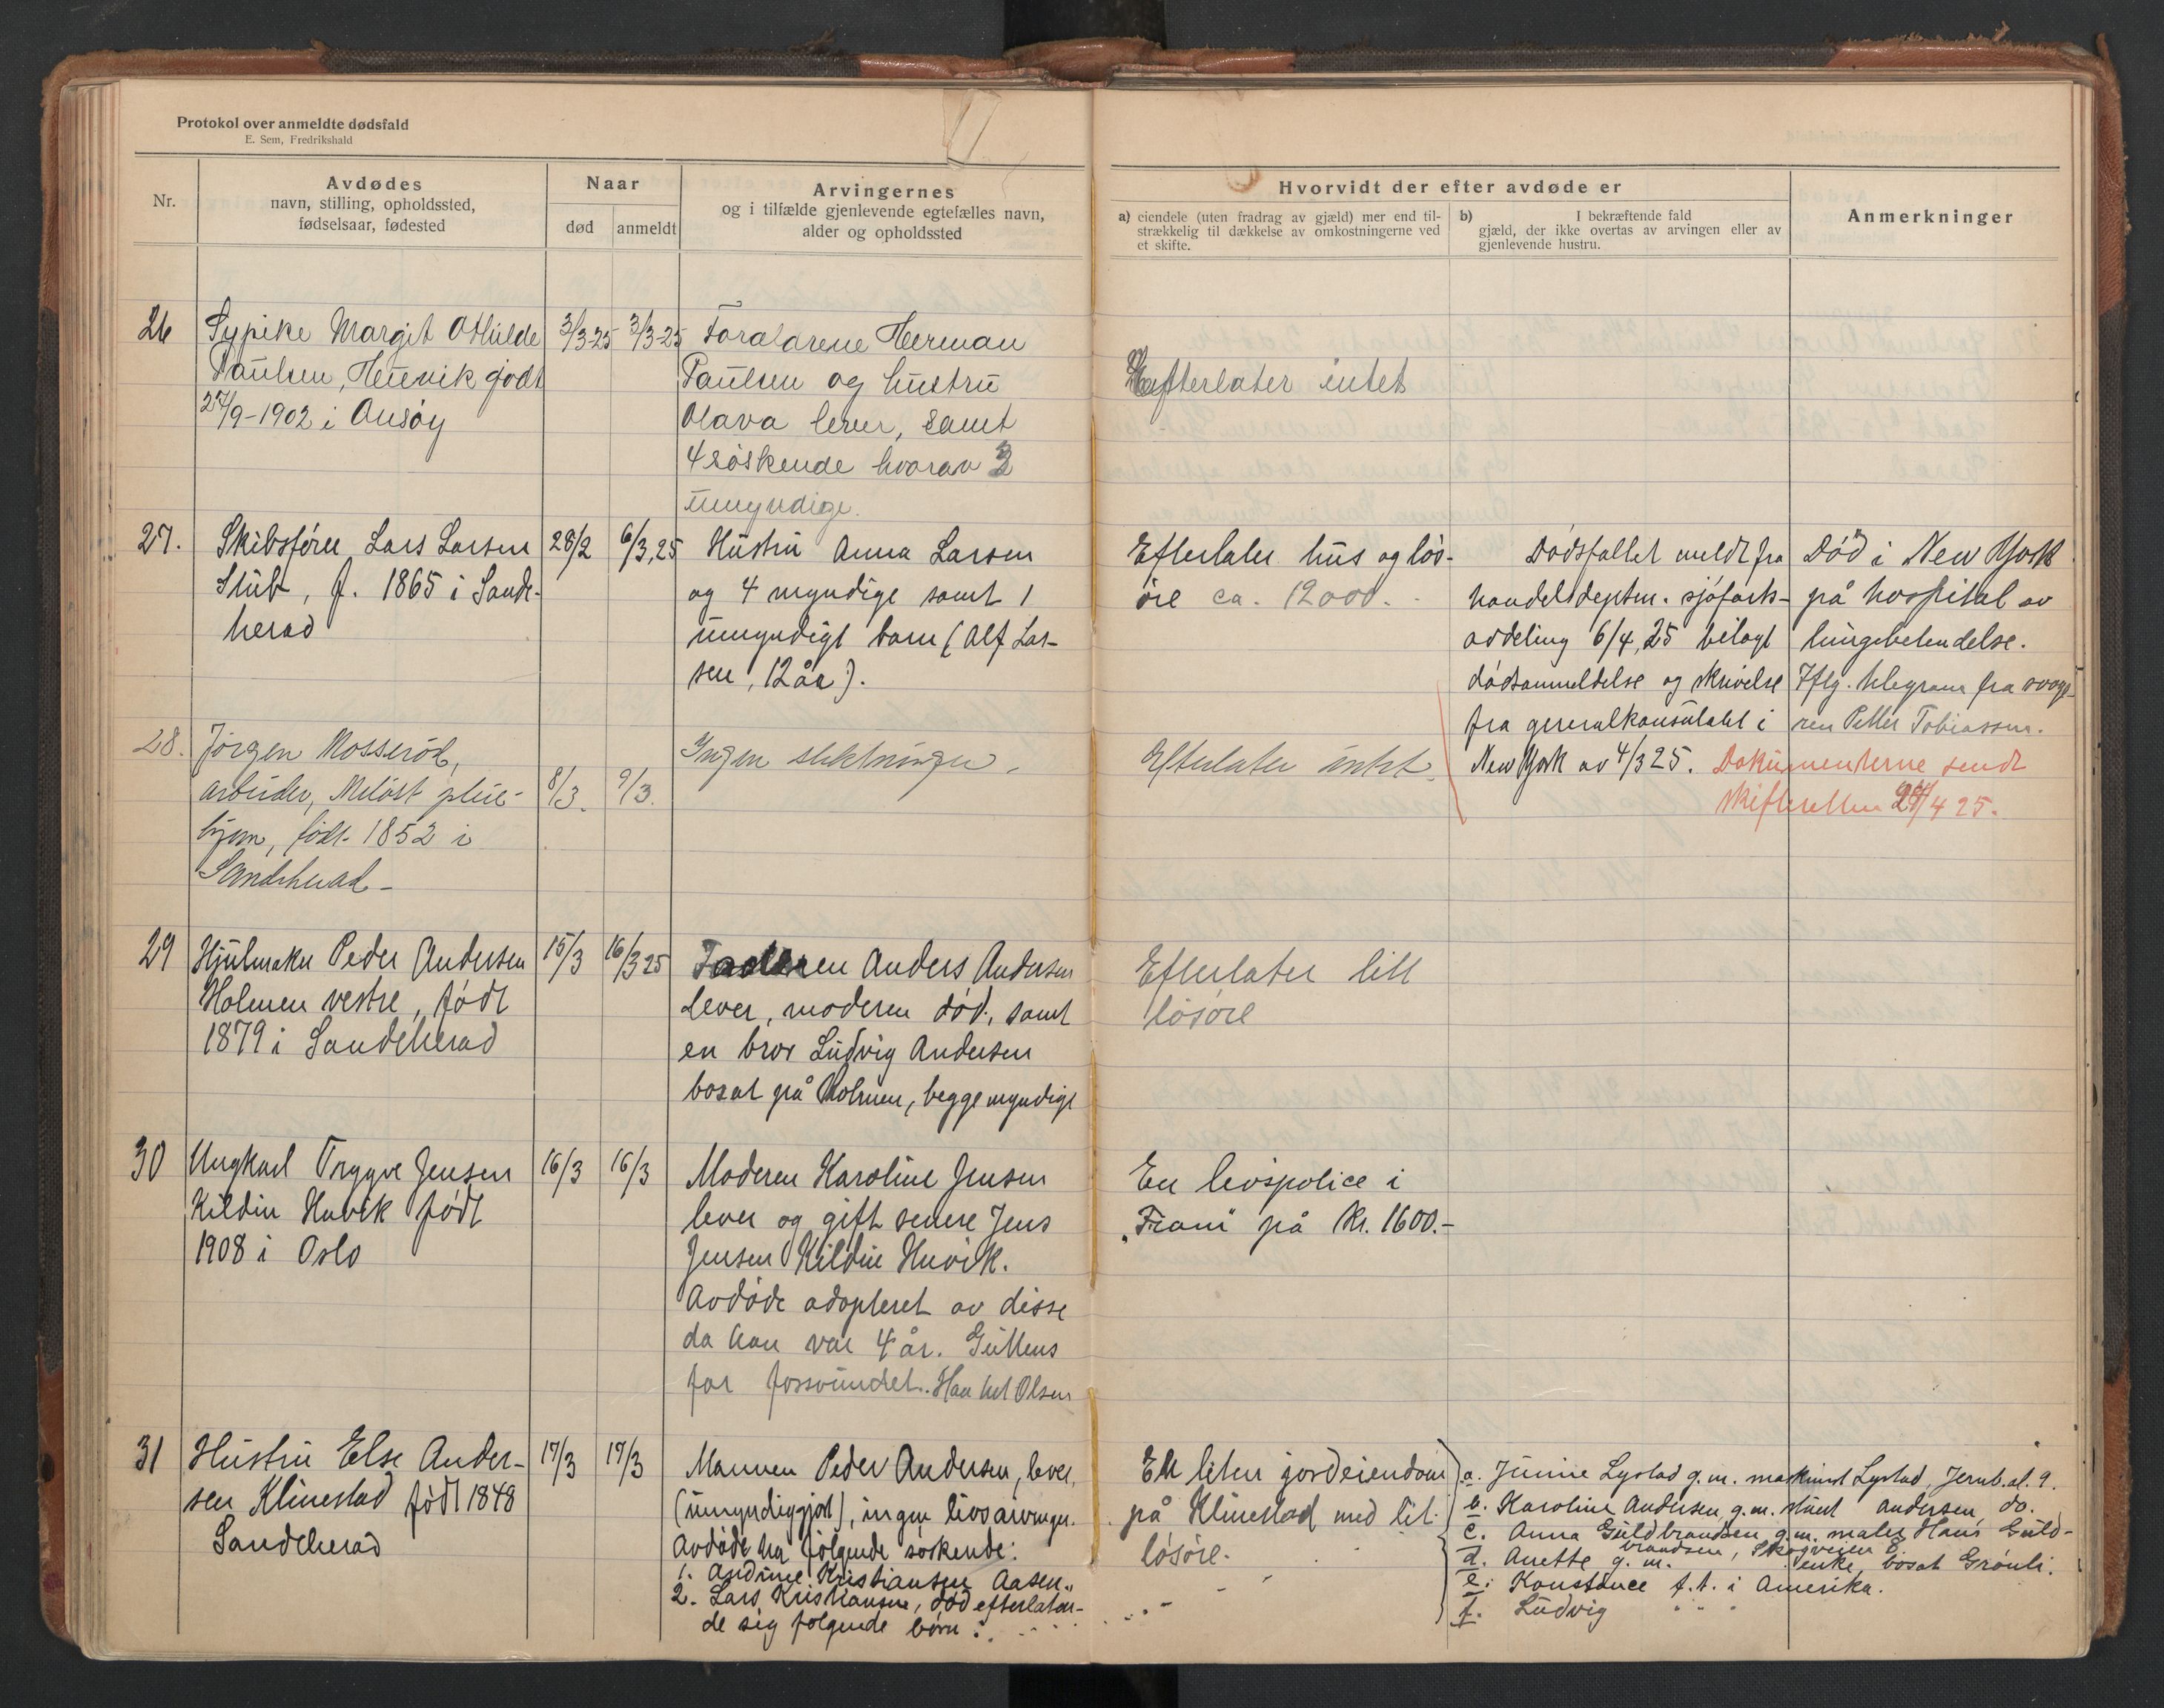 Protokol over anmeldte dødsfald
E. Sem, Fredrikshald
Nr.
Avdødes
navn, stilling, opholdssted,
fødselsaar, fødested
Naar
død
anmeldt
Arvingernes
og i tilfælde gjenlevende egtefælles navn,
alder og opholdssted
Hvorvidt der efter avdøde er
a) eiendele (uten fradrag av gjæld) mer end til-
strækkelig til dækkelse av omkostningerne ved
et skifte.
b) I bekræftende fald
gjæld, der ikke overtas av arvingen eller av
gjenlevende hustru.
Anmerkninger
26
Sypike Margit Othilde
Paulsen, Huvik født
27/9-1902 i Onsøy
3/3-25
3/3-25
Forældrene Herman
Paulsen og hustru
Olava lever, samt
4 søskende hvorav 3
umyndige.
Efterlater intet
27.
Skibsfører Lars Larsen
Stub, f. 1865 i Sande-
herad
28/2
6/3,25
Hustru Anna Larsen
og 4 myndige samt 1
umyndigt barn (Alf Lar-
sen, 12 år).
Efterlater hus og løs-
øre ca. 12000.-
Dødsfallet meldt fra
handelsdeptm. sjøfarts-
avdeling 6/4,25 bilagt
dødsanmeldelse og skrivelse
fra generalkonsulatet i
New York av 4/3 25.
Død i New York
på hospital av
lungebetendelse.
Iflg. telegram fra svoge-
ren Petter Tobiassen.
Dokumenterne sendt
skifteretten 28/4 25.
28.
Jørgen Mosserød,
arbeider, Meløst pleie-
hjem, født 1852 i
Sandeherad -
8/3.
9/3.
Ingen slektninger.
Efterlater intet.
29
Hjulmaker Peder Andersen
Holmen vestre, født
1879 i Sandeherad
15/3
16/3 25
Faderen Anders Andersen
lever, moderen død, samt
en bror Ludvig Andersen
bosat på Holmen, begge myndige
Efterlater litt
løsøre
30
Ungkarl Trygve Jensen
Kildin Huvik født
1908 i Oslo
16/3
16/3
Moderen Karoline Jensen
lever og gift senere Jens
Jensen Kildin Huvik.
Avdøde adopteret av disse
da han var 4 år. Guttens
far forsvundet. Han het Olsen
En livspolice i
"Fram" på kr. 1600.-
31
Hustru Else Ander-
sen Klinestad født 1848
Sandeherad
17/3
17/3
Mannen Peder Andersen, lever,
(umyndiggjort), ingen livsarvinger.
Avdøde har følgende søskende:
1. Andrine Kristiansen Aasen.
2. Lars Kristiansen, død efterlaten-
de sig følgende børn:
En liten jordeiendom
på Klinestad med lit
løsøre.
a. Junine Lystad g.m. maskinist Lystad, Jernb.al. 9.
b. Karoline Andersen g.m. Andersen, do.
c. Anna Guldbrandsen g.m. maler Hans Guld-
brandsen, Skogveien 6.
d. Anette g.m. enke, bosat Grønli.
e. Konstance f.t. i Amerika.
f. Ludvig " " "